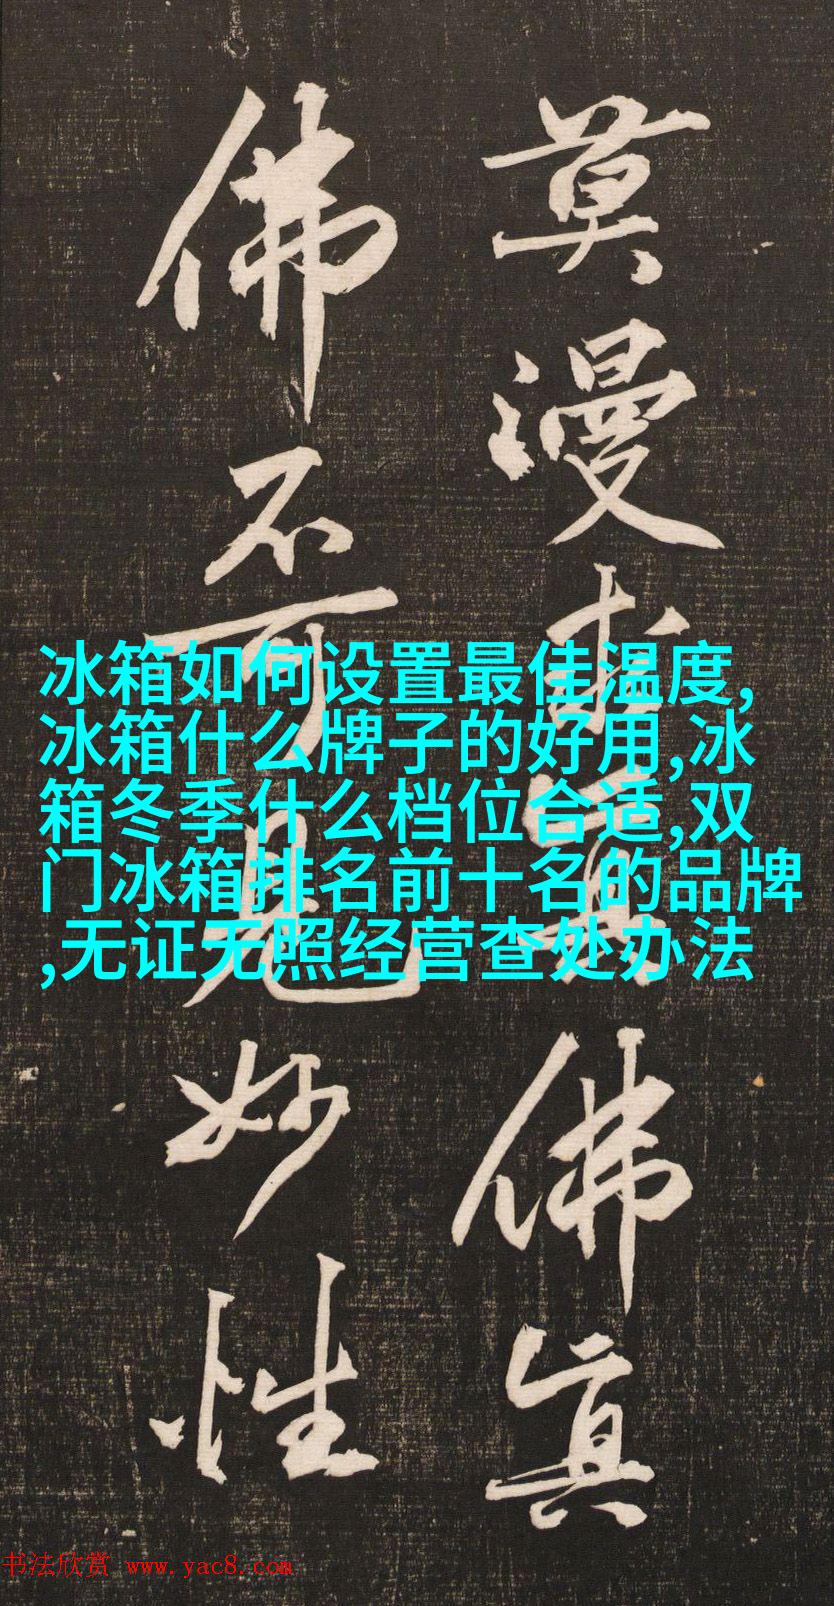 莫漫求真佛真
佛不可見妙性
冰箱如何设置最佳温度,
冰箱什么牌子的好用,冰
箱冬季什么档位合适,双
门冰箱排名前十名的品牌
,无证无照经营查处办法
书法欣赏 www.yac8.com